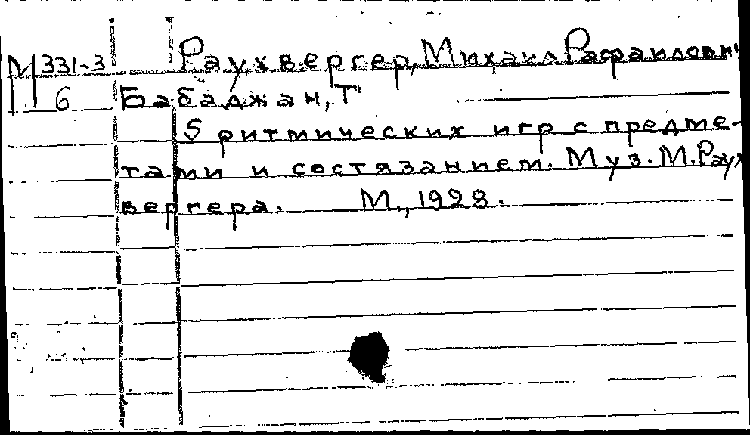 М 331-3 Раухвергер, Михаил Рафаилович
6 Бабаджан, Т.
5 ритмических игр с предме-
тами и состязанием. Муз. М. Раух
вергера. М., 1928.